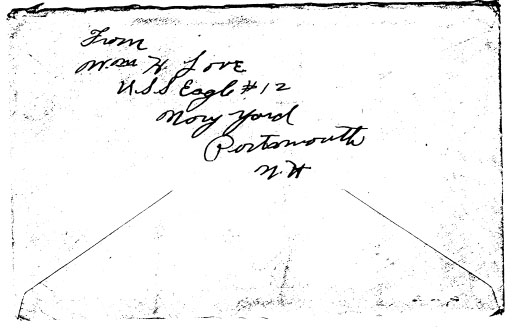 From
Wm H. Love
U.S.S Eagle #12
Navy Yard
Portsmouth
N.H